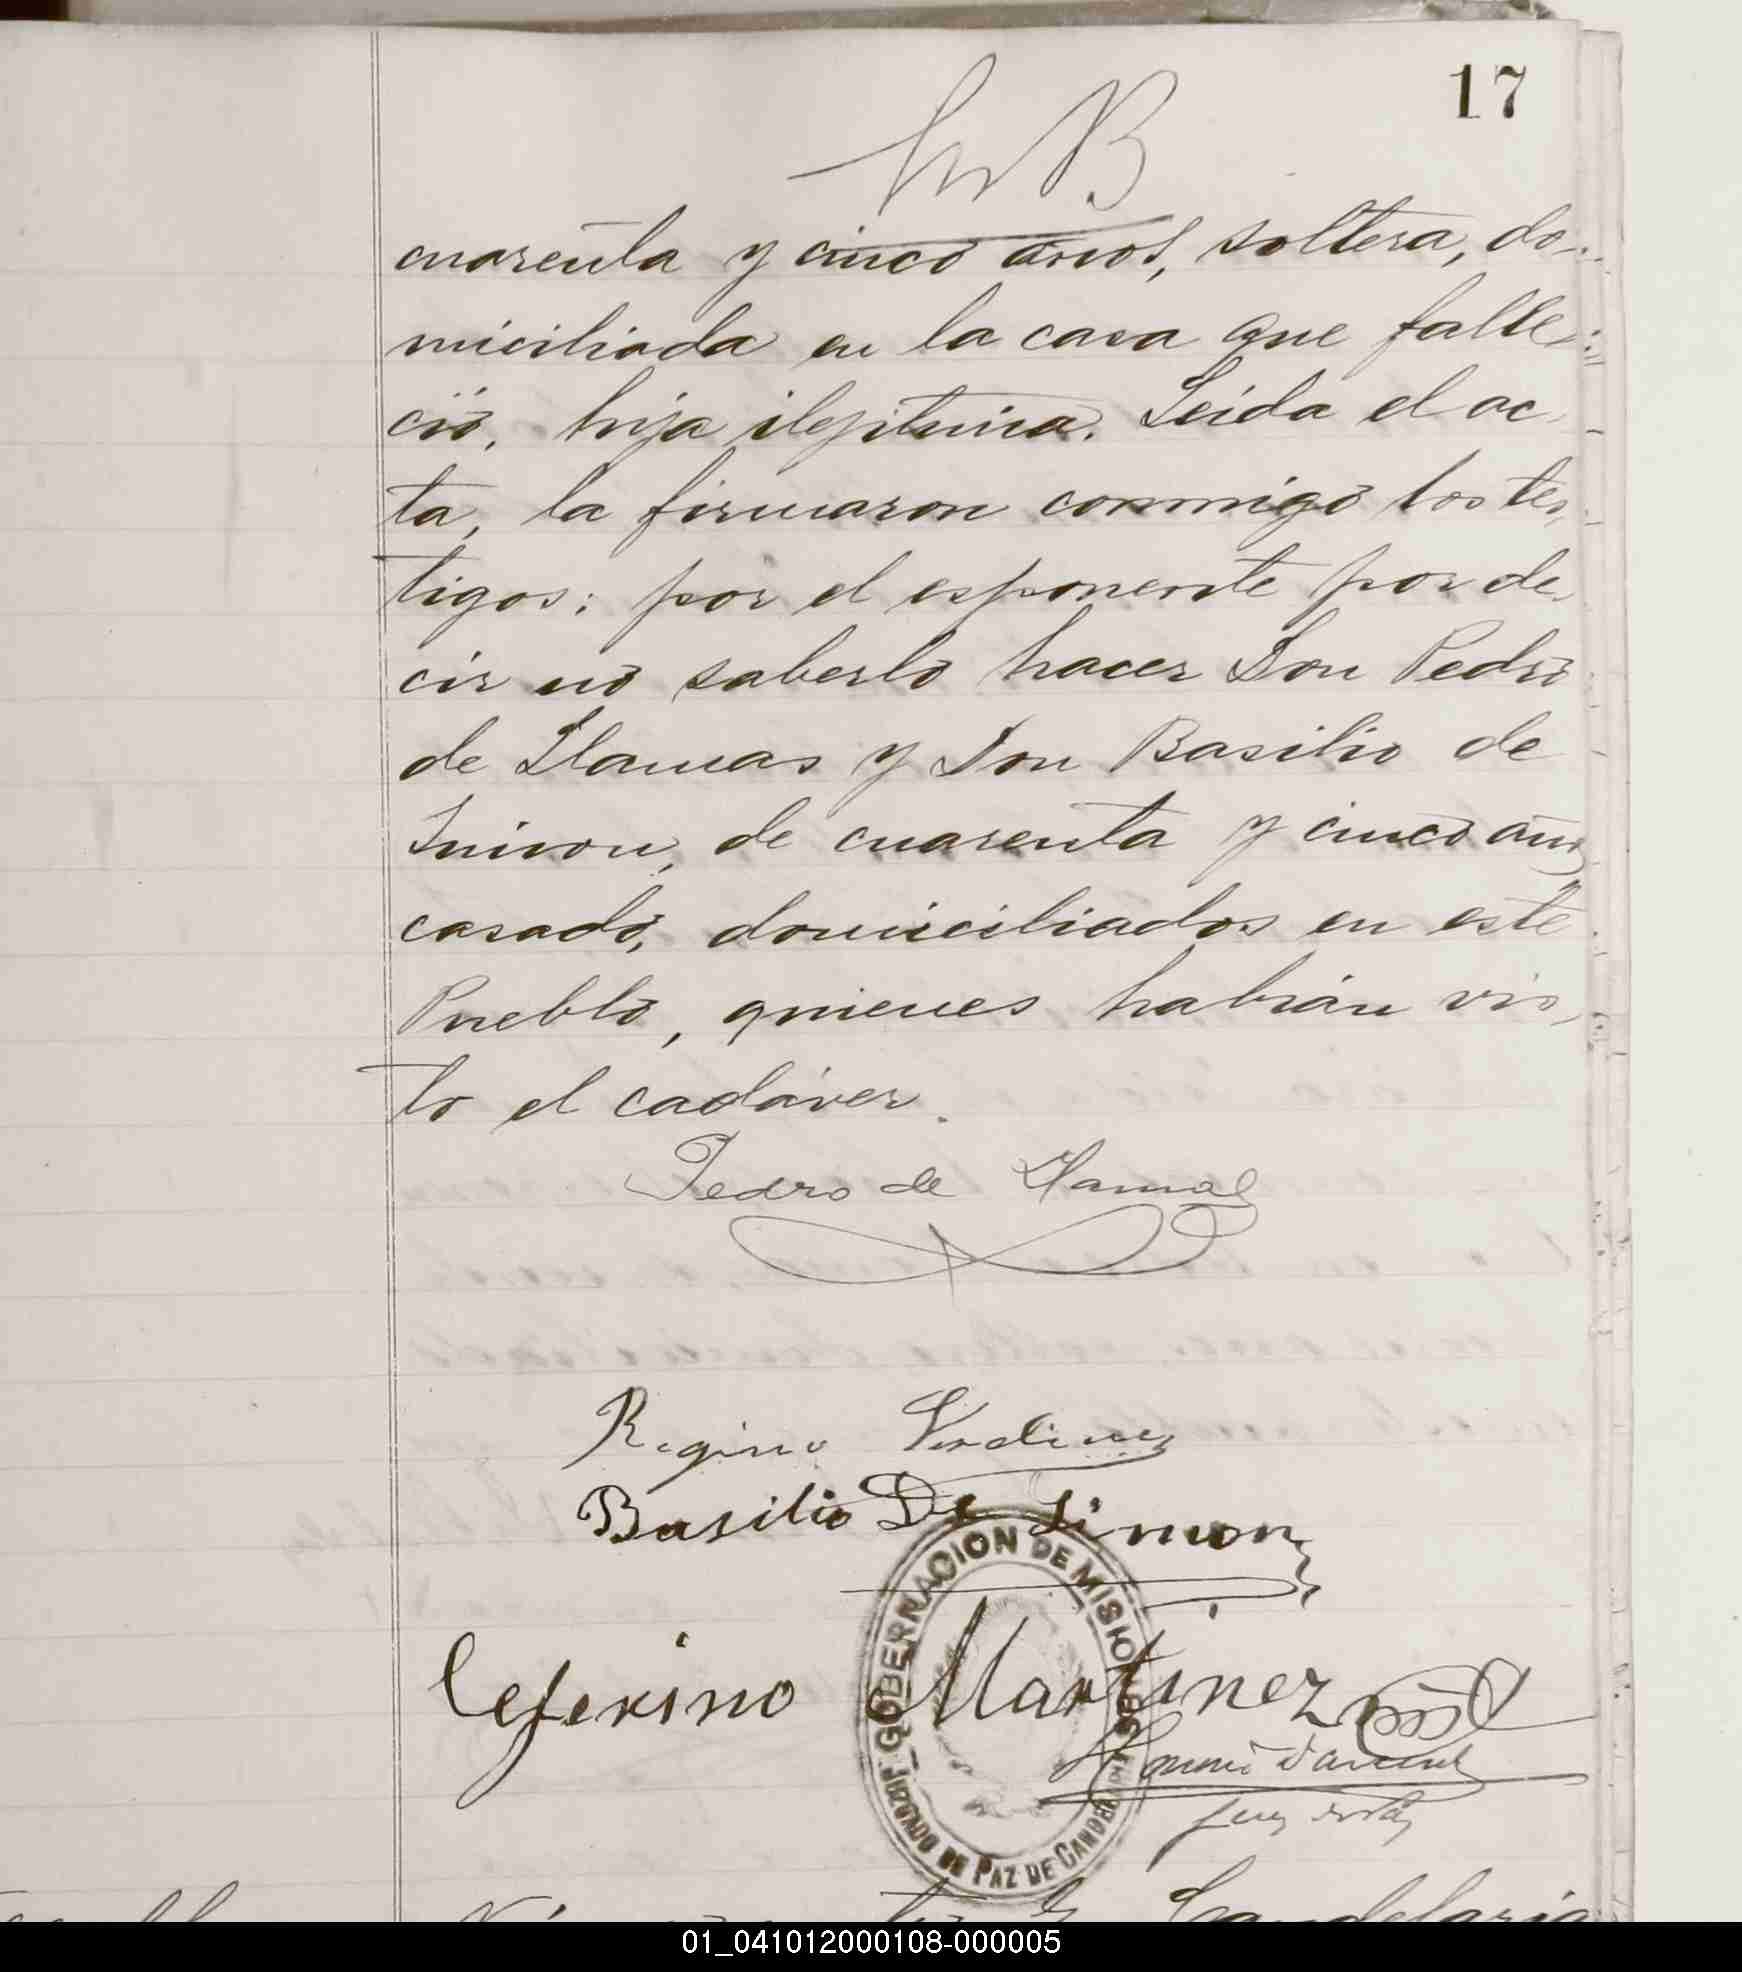 17
cuarenta y cinco años, soltera, do-
miciliada en la casa que falle-
ció, hija ilegitima. Leida el ac-
ta, la firmaron conmigo los tes-
tigos; por el esponente por de-
cir no saberlo hacer Don Pedro
de Llamas y Don Basilio de
Simon, de cuarenta y cinco años
casado, domiciliados en este
Pueblo, quienes habian vis-
to el cadáver.
Pedro de Llamas
Regino
Basilio De Simon
Ceferino Martinez
GOBERNACION DE MISIONES
JUZGADO DE PAZ DE CANDELARIA
Candelaria
01_041012000108-000005